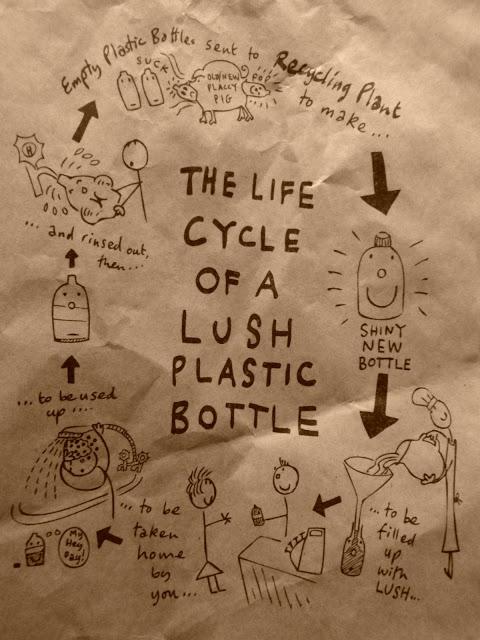 Empty Plastic Bottles sent to Recycling Plant
to make...
SUCK
OLD/NEW
PLACCY
PIG
POP
THE LIFE
CYCLE
OF A
LUSH
PLASTIC
BOTTLE
SHINY
NEW
BOTTLE
...to be
filled
up
with
LUSH...
...to be
taken
home
by
you...
My
Hey
Day!
...to be used
up....
...and rinsed out,
then...
H